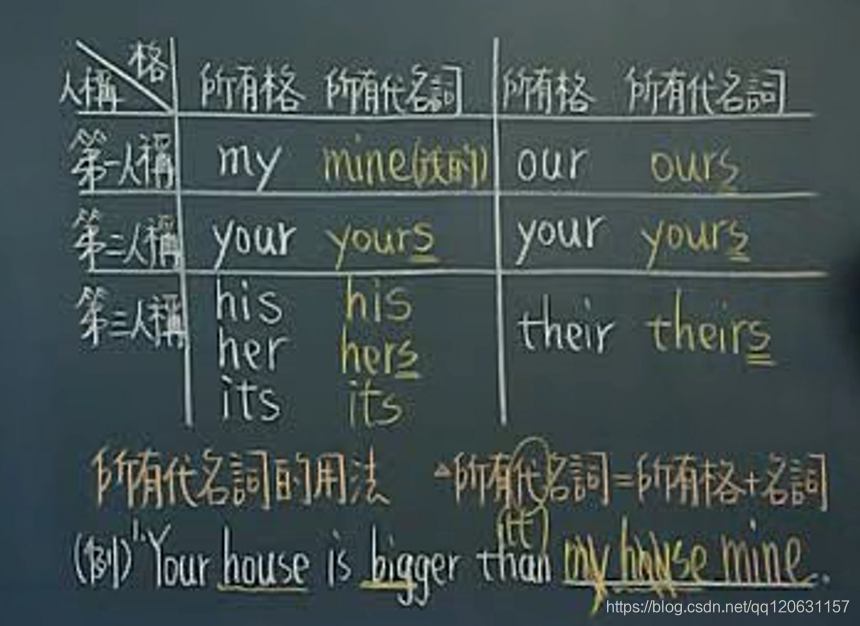 格
人稱 所有格 所有代名詞 所有格 所有代名詞
第一人稱 my mine(我的) our ours
第二人稱 your yours your yours
第三人稱 his his their theirs
her hers
its its
所有代名詞的用法 △所有代名詞=所有格+名詞
(代)
(例)1.Your house is bigger than my house mine.
https://blog.csdn.net/qq120631157